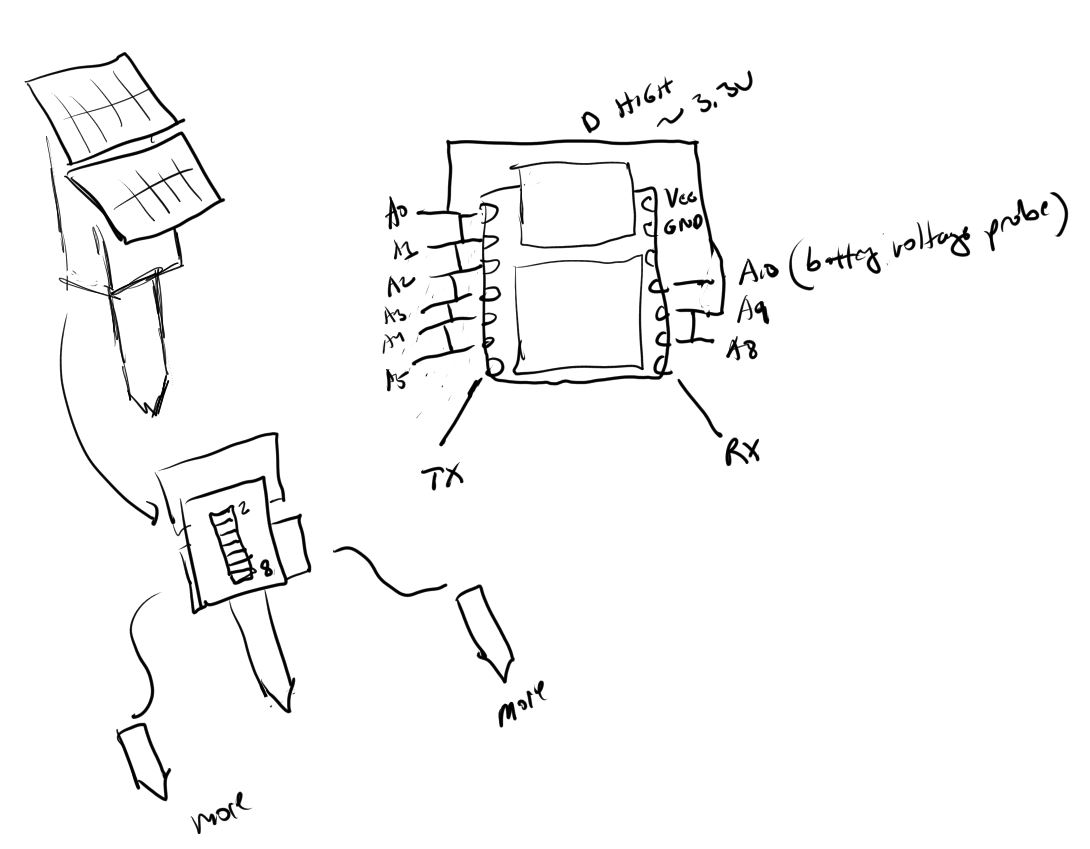 D HIGH ~ 3.3V
A0
A1
A2
A3
A4
A5
Vcc
GND
A10 (battey voltage probe)
A9
A8
TX
RX
2
8
more
more